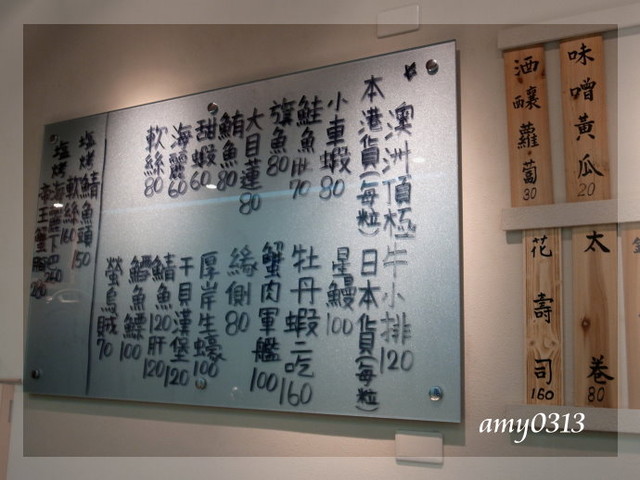 澳洲頂極牛小排120
本港貨(每粒)
小車蝦80
鮭魚肚70
旗魚80
大目蓮80
鮪魚80
甜蝦60
海麗60
軟絲80
日本貨(每粒)
星鰻100
牡丹蝦二吃160
蟹肉軍艦100
緣側80
厚岸生蠔100
干貝漢堡120
鯖魚120肝120
鱈魚鰾100
螢烏賊70
塩烤鯖魚頭150
軟絲160
塩烤海麗下巴
帝王蟹腳
味噌黃瓜20
酒釀蘿蔔30
太卷80
花壽司160
amy0313